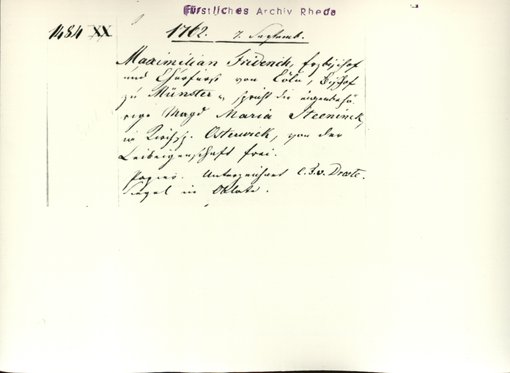 Fürstliches Archiv Rheda
1484 XX
1762. 7. Septemb.
Maximilian Friderich, Erzbischof
und Churfürst von Cöln, Bischof
zu Münster, spricht die eigenbehö-
rige Magd Maria Steeninck,
im Kirchsp. Osterwick, von der
Leibeigenschaft frei.
Papier. Unterzeichnet C. B. v. Droste.
Siegel in Oblate.